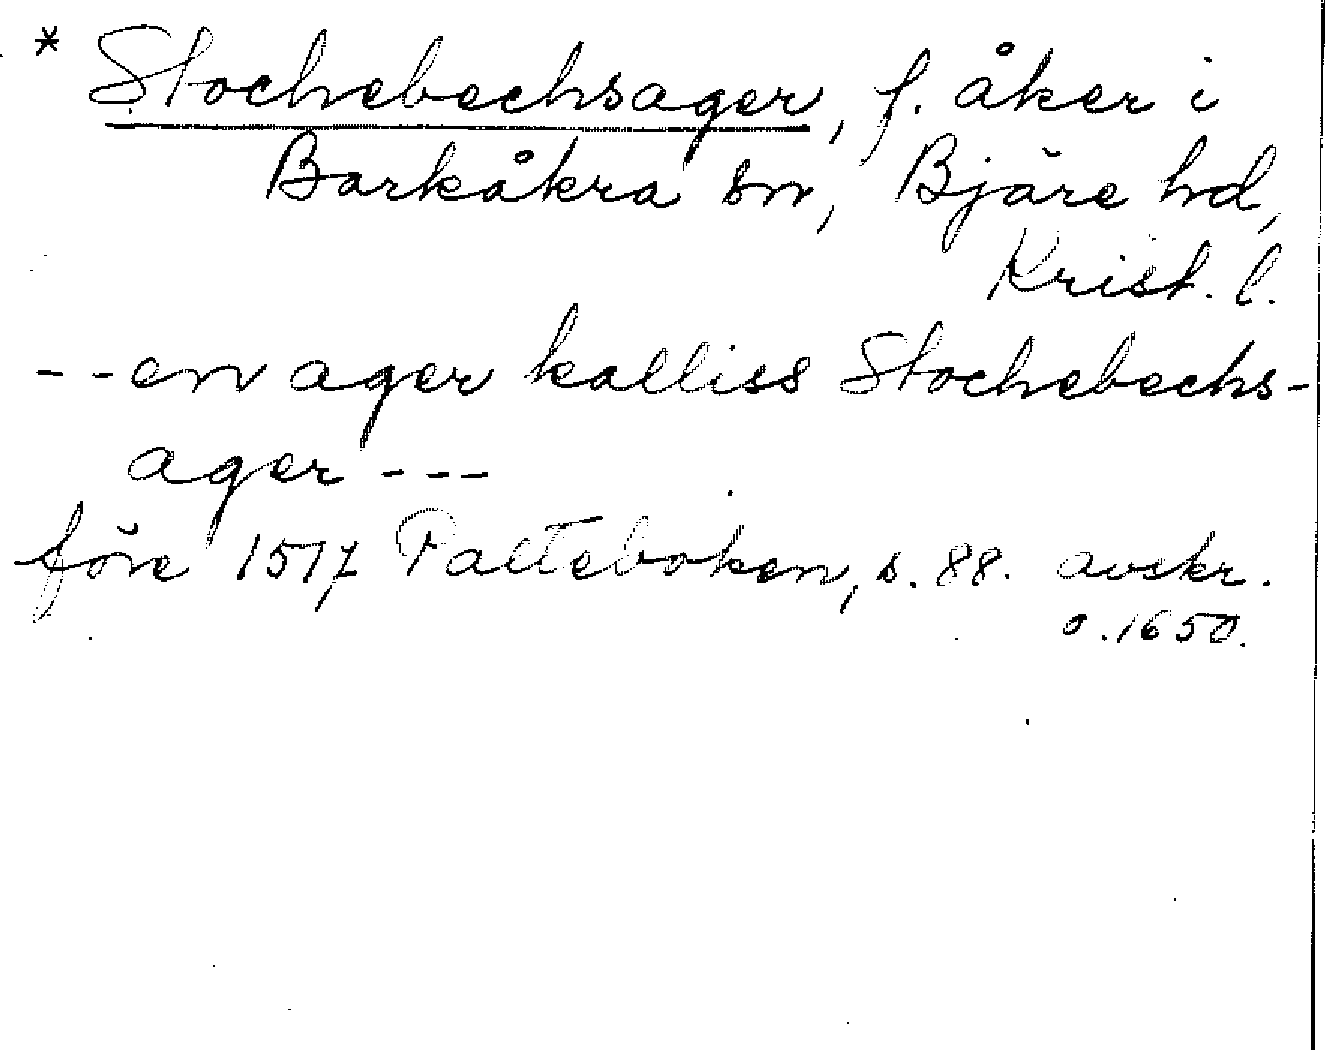 * Stochebechsager, f. åker i
Barkåkra sn, Bjäre hd,
Krist. l.
-- en ager kalliss Stochebechs-
ager ---
före 1517 Palteboken, s. 88. avskr.
o. 1650.